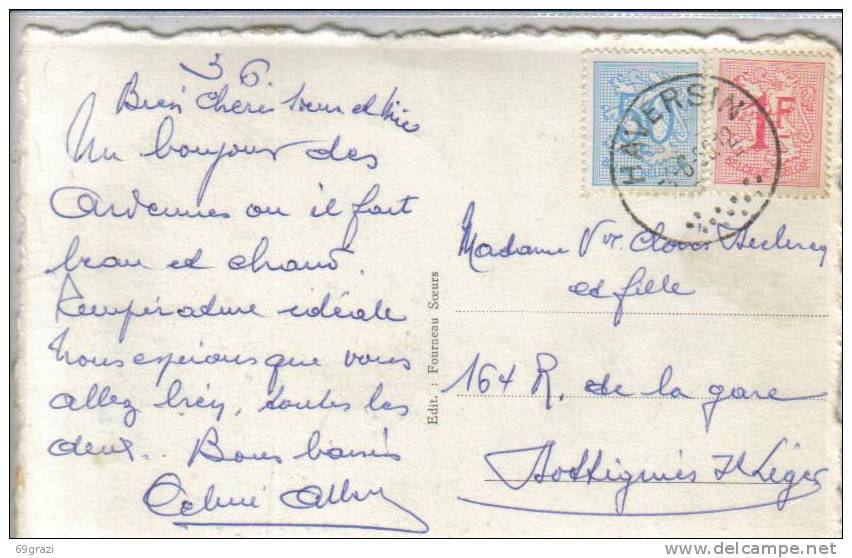 3 6
Bien chère soeur et nièce
Un bonjour des
Ardennes ou il fait
beau et chaud.
Température idéale
Nous espérons que vous
allez bien, toutes les
deux.. Bons baisers
Edit. : Fourneau Sœurs
50
1F
BELGIQUE BELGIE
HAVERSIN
Madame Vve Clovis Leclercq
et fille
164 R. de la gare
Dottignies St Léger
69grazi
www.delcampe.net